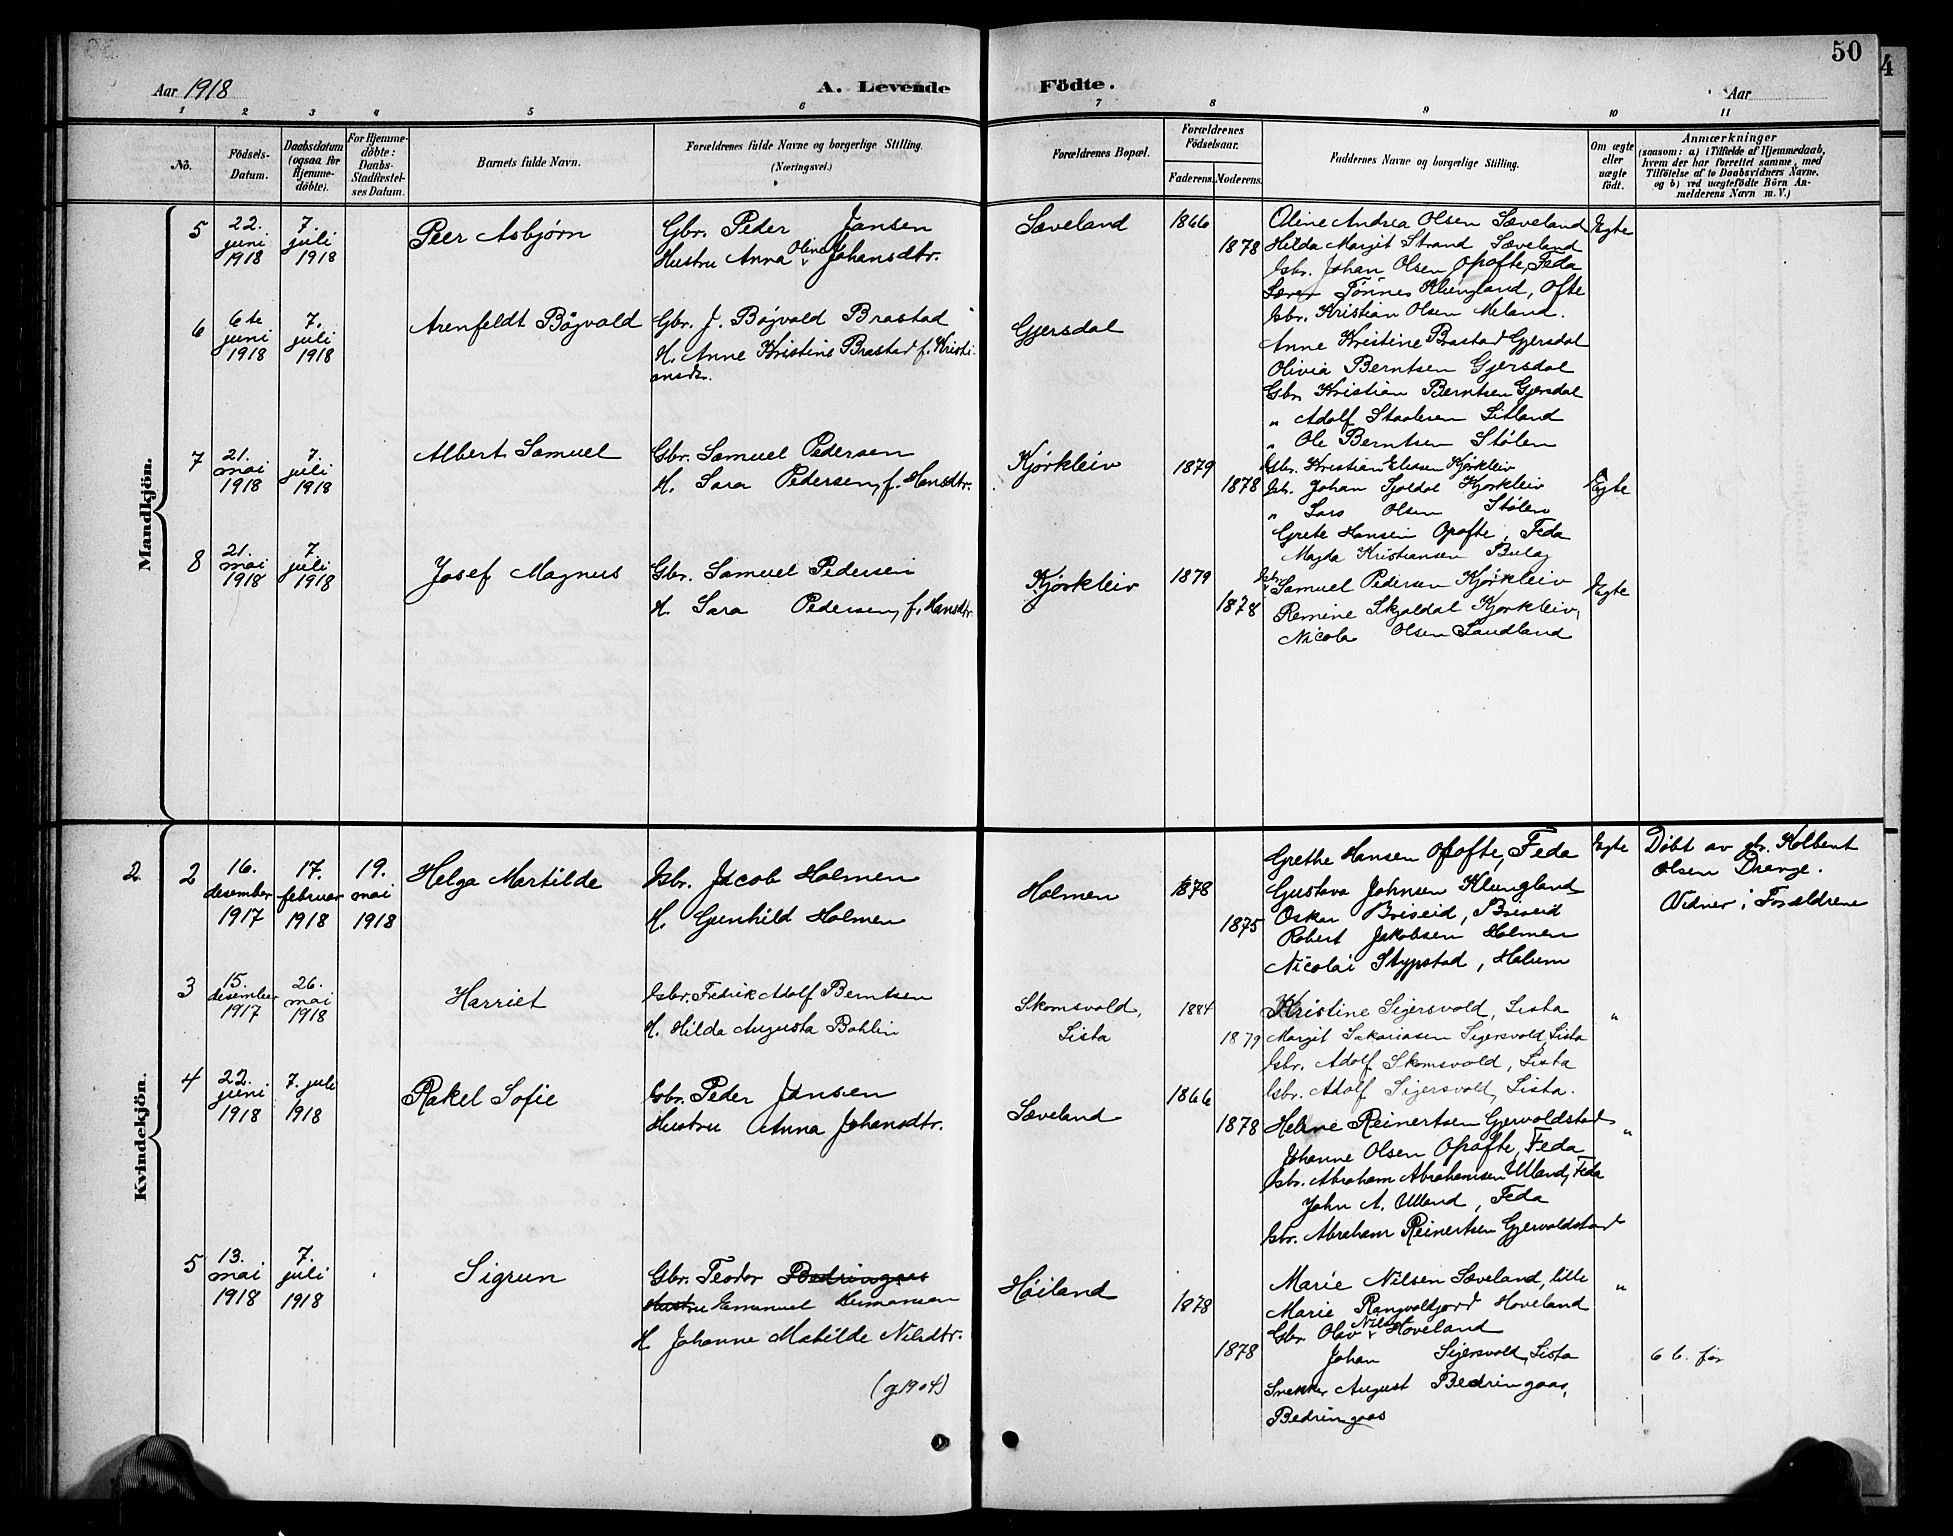 50
4
Aar 1918
A. Levende
Födte.
Aar
1 2 3 4 5 6 7 8 9 10 11
No.
Födsels-
Datum.
Daabsdatum
(ogsaa for
Hjemme-
döbte).
For Hjemme-
döbte:
Daabs-
Stadfæstel-
ses Datum.
Barnets fulde Navn.
Forældrenes fulde Navne og borgerlige Stilling.
(Næringsvei.)
Forældrenes Bopæl.
Forældrenes
Födselsaar.
Faderens. Moderens.
Faddernes Navne og borgerlige Stilling.
Om ægte
eller
uægte
födt.
Anmærkninger
(saasom: a) i Tilfælde af Hjemmedaab,
hvem der har forrettet samme, med
Tilföielse af to Daabsvidners Navne,
og b) ved uægtefödte Börn An-
melderens Navn m. V.)
Mandkjön.
5
22.
juni
1918
7.
juli
1918
Peer Asbjørn
Gbr. Peder Jansen
Hustru Anna Oline Johansdtr.
Sæveland
1866
1878
Oline Andrea Olsen Sæveland
Hilda Margit Strand Sæveland
Gbr. Johan Olsen Opofte, Feda
Tønnes Klungland, Ofte
Gbr. Kristian Olsen Meland.
Egte
6
6te
juni
1918
7.
juli
1918
Arenfeldt Bågvald
Gbr. J. Bågvald Brastad
H. Anne Kristine Brastad f. Kristi-
ansdr.
Gjersdal
Anne Kristine Brastad Gjersdal
Olivia Berntsen Gjersdal
Gbr. Kristian Berntsen Gjersdal
" Adolf Staalesen Litland
" Ole Berntsen Stølen
7
21.
mai
1918
7.
juli
1918
Albert Samuel
Gbr. Samuel Pedersen
H. Sara Pedersen, f. Hansdtr.
Kjørkleiv
1879
1878
Gbr. Kristian Eliasen Kjørkleiv
Gbr. Johan Sjoldal Kjørkleiv
" Lars Olsen Stølen
Grete Hansen Opofte, Feda
Magda Kristiansen Bulag
Egte
8
21.
mai
1918
7.
juli
1918
Josef Magnus
Gbr. Samuel Pedersen
H. Sara Pedersen, f. Hansdtr.
Kjørkleiv
1879
1878
Gbr. Samuel Pedersen Kjørkleiv
Remine Skjoldal Kjørkleiv,
Nicolai Olsen Sandland
Egte
Kvindekjön.
2
2
16.
desember
1917
17.
februar
1918
19.
mai
1918
Helga Martilde
Gbr. Jacob Holmen
H. Gunhild Holmen
Holmen
1878
1875
Grethe Hansen Opofte, Feda
Gustava Johnsen Klungland
Oskar Briseid, Briseid
Robert Jakobsen Holmen
Nicolai Stypstad, Holum
Egte
Døbt av gbr. Kolbent
Olsen Drange.
Vidner: Forældrene
3
15.
desember
1917
26.
mai
1918
Harriet
Gbr. Fredrik Adolf Berntsen
H. Hilda Augusta Bohlin
Skomsvold,
Lista
1884
1879
Kristine Sigersvold, Lista
Margit Sakariasen Sigersvold, Lista
Gbr. Adolf Skomsvold, Lista
Gbr. Adolf Sigersvold, Lista.
"
4
22.
juni
1918
7. juli
1918
Rakel Sofie
Gbr. Peder Jansen
Hustru Anna Johansdtr.
Sæveland
1866
1878
Helene Reinertsen Gjervoldstad
Johanne Olsen Opofte, Feda
Gbr. Abraham Abrahamsen Ulland, Feda
John A. Ulland, Feda
Gbr. Abraham Reinertsen Gjervoldstad
"
5
13.
mai
1918
7.
juli
1918
Sigrun
Gbr. Teodor Bedringaas
Hustru Emanuel Hermansen
H. Johanne Matilde Nilsdtr.
(g. 1904)
Høiland
1878
1878
Marie Nilsen Sæveland, lille
Marie Rangvaldjord Hoveland
Gbr. Olav Nilsen Hoveland
Johan Sigersvold, Lista
Snekker August Bedringaas,
Bedringaas
"
6 b. før